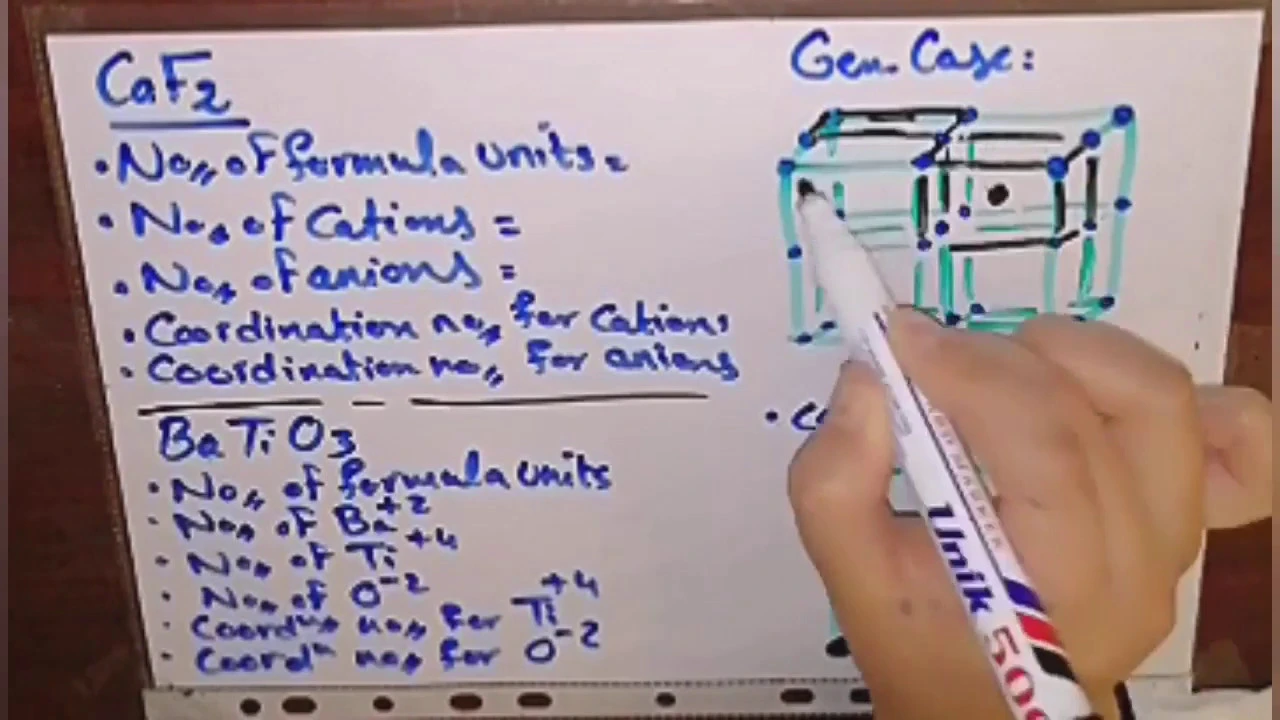 CaF2
• No,, of formula units =
• No,, of Cations =
• No,, of anions =
• Coordination no,, for Cations
• Coordination no,, for anions
BaTiO3
• No,, of formula units
• No,, of Ba+2
• No,, of Ti+4
• No,, of O-2
• Coordn no,, for Ti+4
• Coordn no,, for O-2
Gen. Case:
Unik 500